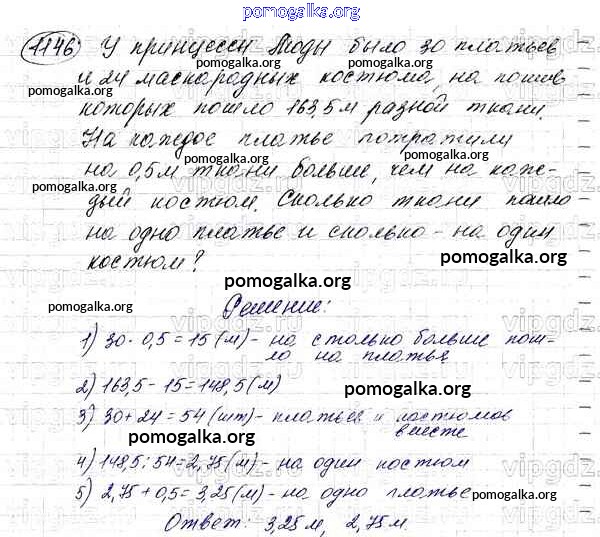 pomogalka.org
1146 У принцессы Моды было 30 платьев
и 24 маскарадных костюма, на пошив
которых пошло 163,5 м разной ткани.
На каждое платье потратили
на 0,5 м ткани больше, чем на каж-
дый костюм. Сколько ткани пошло
на одно платье и сколько - на один
костюм?
pomogalka.org
Решение:
1) 30 · 0,5 = 15 (м) - на столько больше пош-
ло на платья
2) 163,5 - 15 = 148,5 (м)
pomogalka.org
3) 30 + 24 = 54 (шт) - платьев и костюмов
вместе
pomogalka.org
4) 148,5 : 54 = 2,75 (м) - на один костюм
5) 2,75 + 0,5 = 3,25 (м) - на одно платье
pomogalka.org
Ответ: 3,25 м, 2,75 м